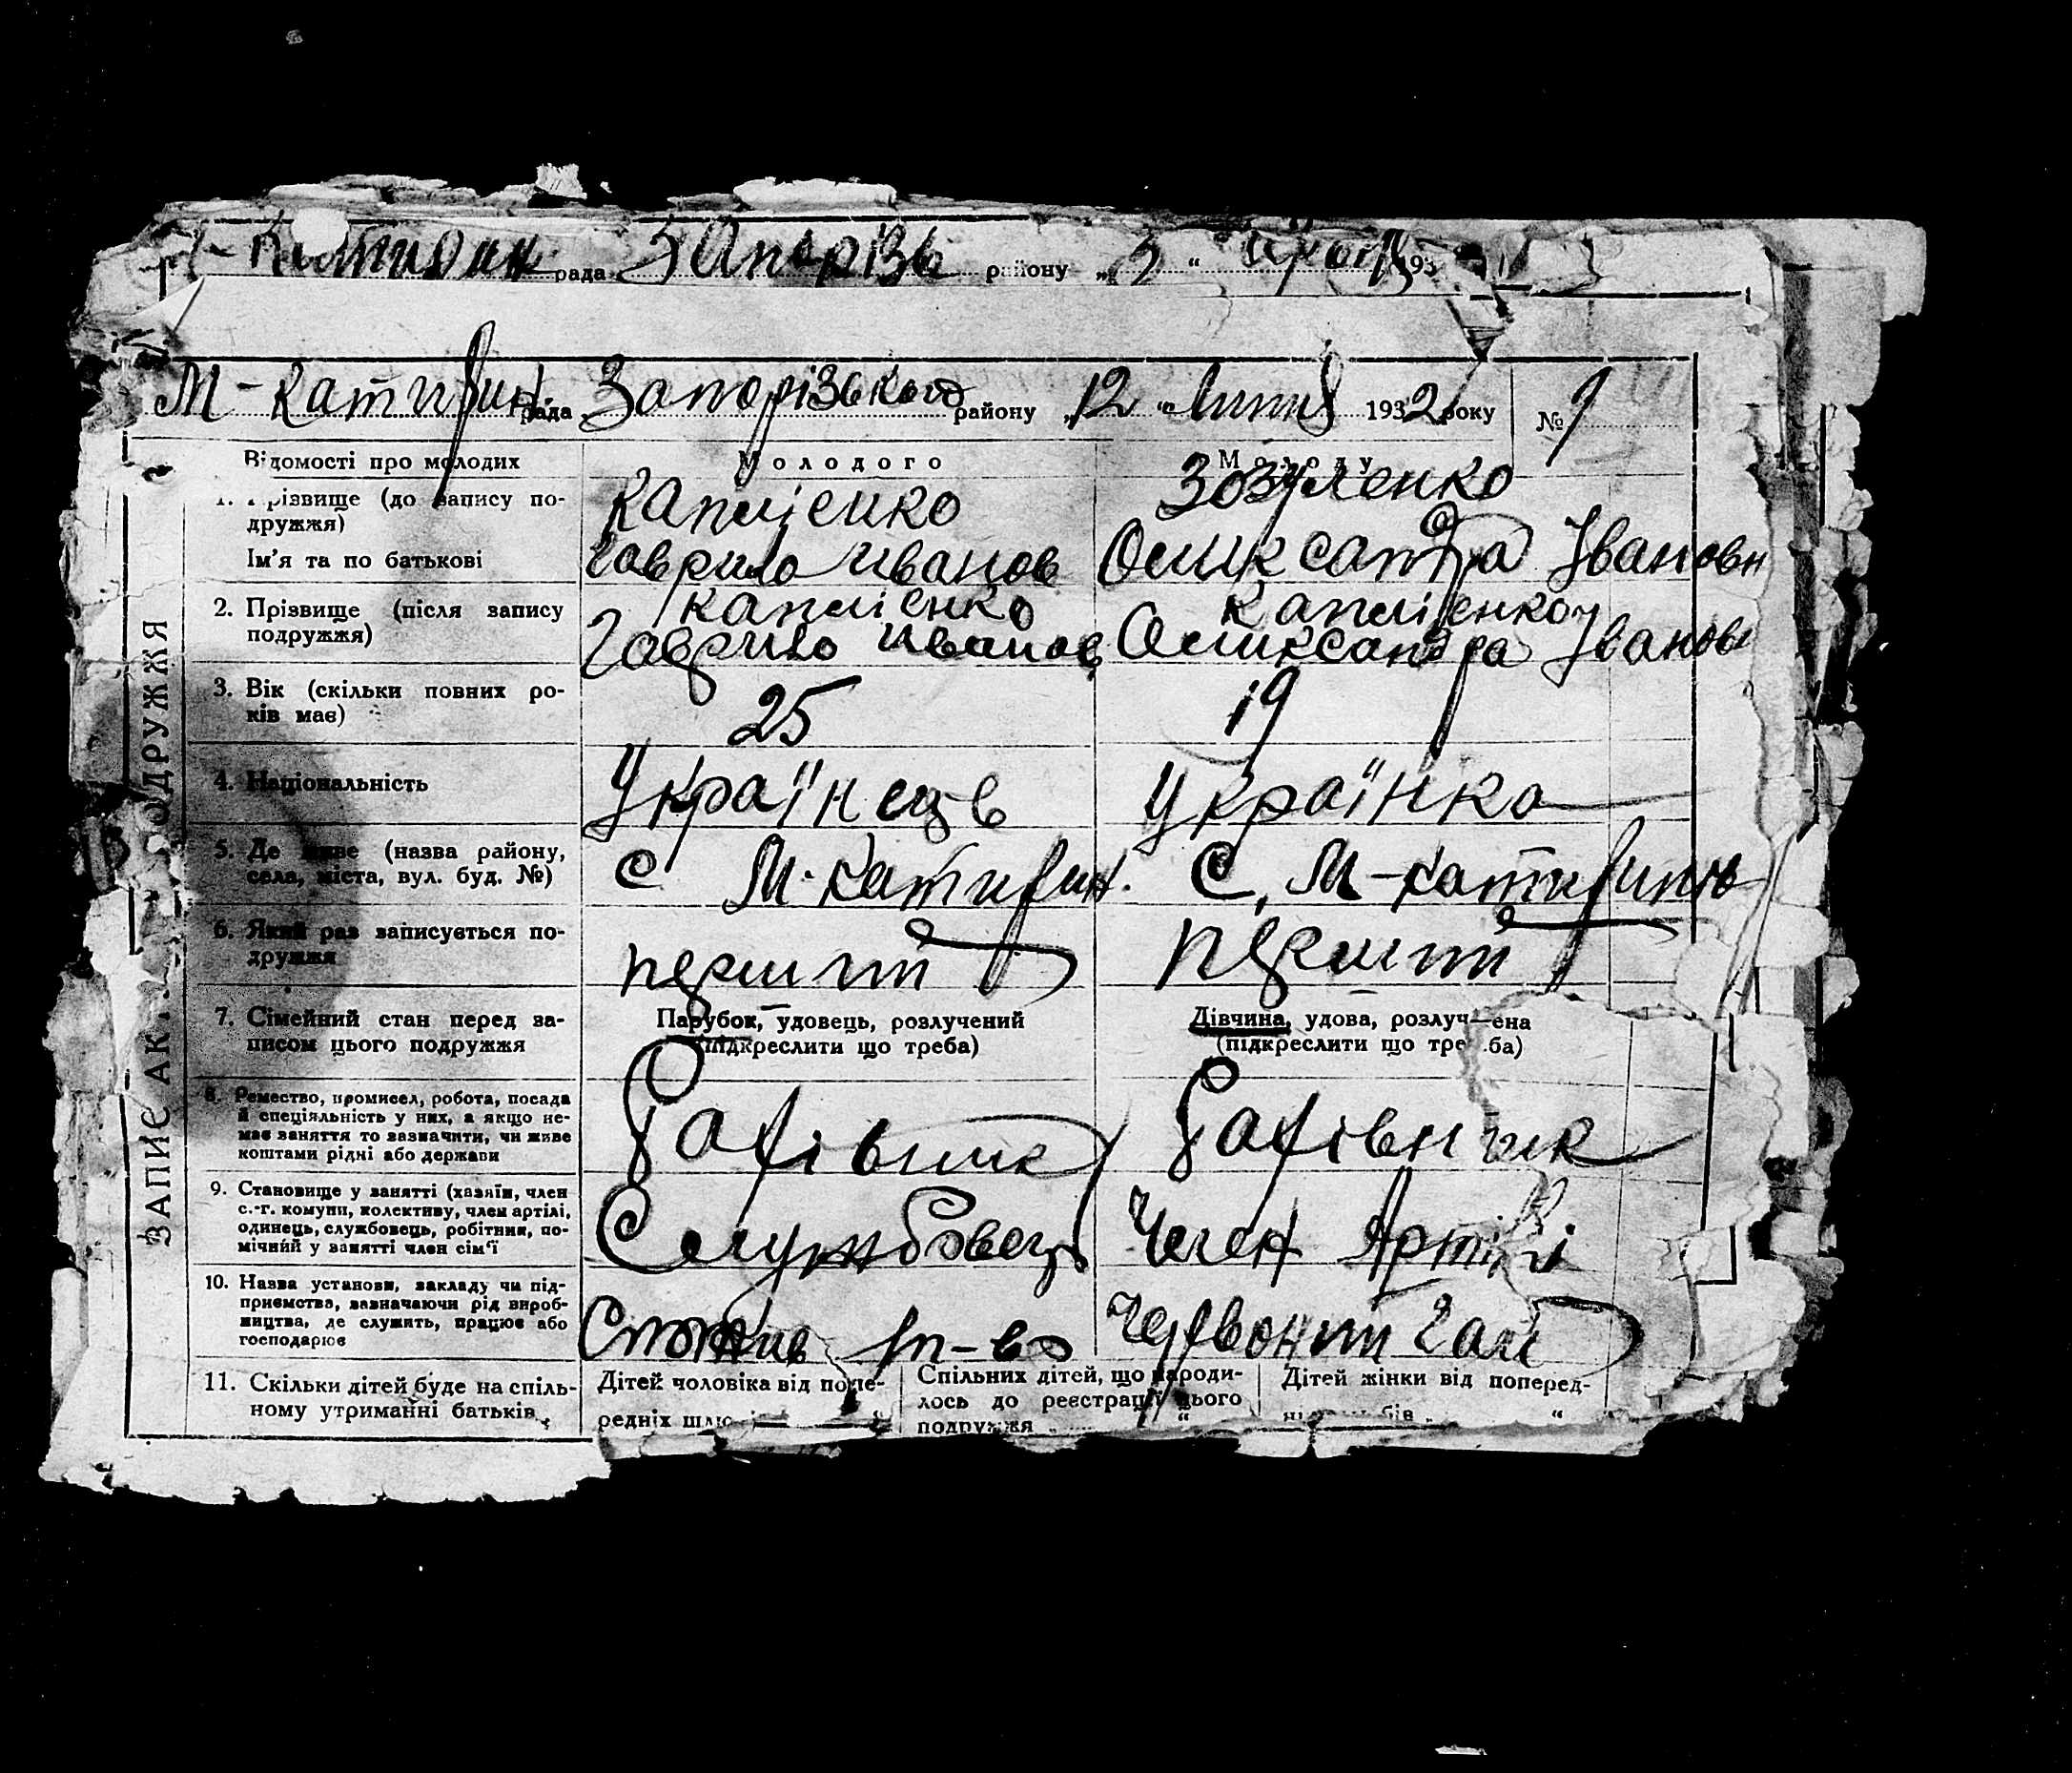 рада Запорізь району „3“ 193
М-Катирин. рада Запорізького району „12“ Лютий 1932 року № 9
Відомості про молодих Молодого Молоду
1. Прізвище (до запису по-
дружжя)
Капліенко Зозуленко
Ім'я та по батькові
Гаврило Иванов Олик сандра Івановн
2. Прізвище (після запису
подружжя)
Капліенко Капліенко
Гаврило Иванов Олика­сандра Іванов
3. Вік (скільки повних ро-
ків має)
25 19
4. Національність
Українець Українка
5. Де живе (назва району,
села, міста, вул. буд. №)
с М-Катирин. С. М-Катирин
6. Який раз записується по-
дружжя
перший перший
7. Сімейний стан перед за-
писом цього подружжя
Парубок, удовець, розлучений
(підкреслити що треба)
Дівчина, удова, розлучена
(підкреслити що треба)
8. Ремество, промисел, робота, посада
й спеціяльність у них, а якщо не-
має заняття то зазначити, чи живе
коштами рідні або держави
Рабівник Рабівник
9. Становище у занятті (хазяїн, член
с.-г. комуни, колективу, член артілі,
одинець, службовець, робітник, по-
мічний у занятті член сім'ї
Службовець Член Артілі
10. Назва установи, закладу чи під-
приємства, зазначаючи рід вироб-
ництва, де служить, працює або
господарює
Спожив т-во Червоний Гай
11. Скільки дітей буде на спіль-
ному утриманні батьків
Дітей чоловіка від попе-
редніх шлю
Спільних дітей, що народи-
лось до реєстрації цього
подружжя
Дітей жінки від поперед-
ЗАПИС АК ПОДРУЖЖЯ